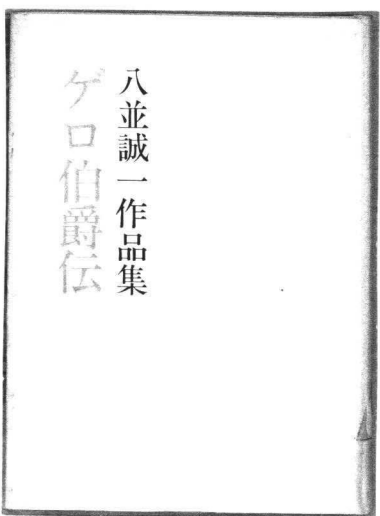 八並誠一作品集
ゲロ伯爵伝